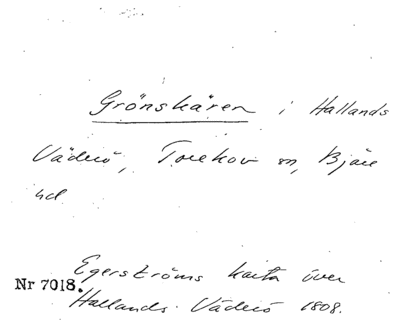 Grönskären i Hallands
Väderö, Torekov sn, Bjäre
hd.
Egerströms karta över
Nr 7018.
Hallands Väderö 1808.